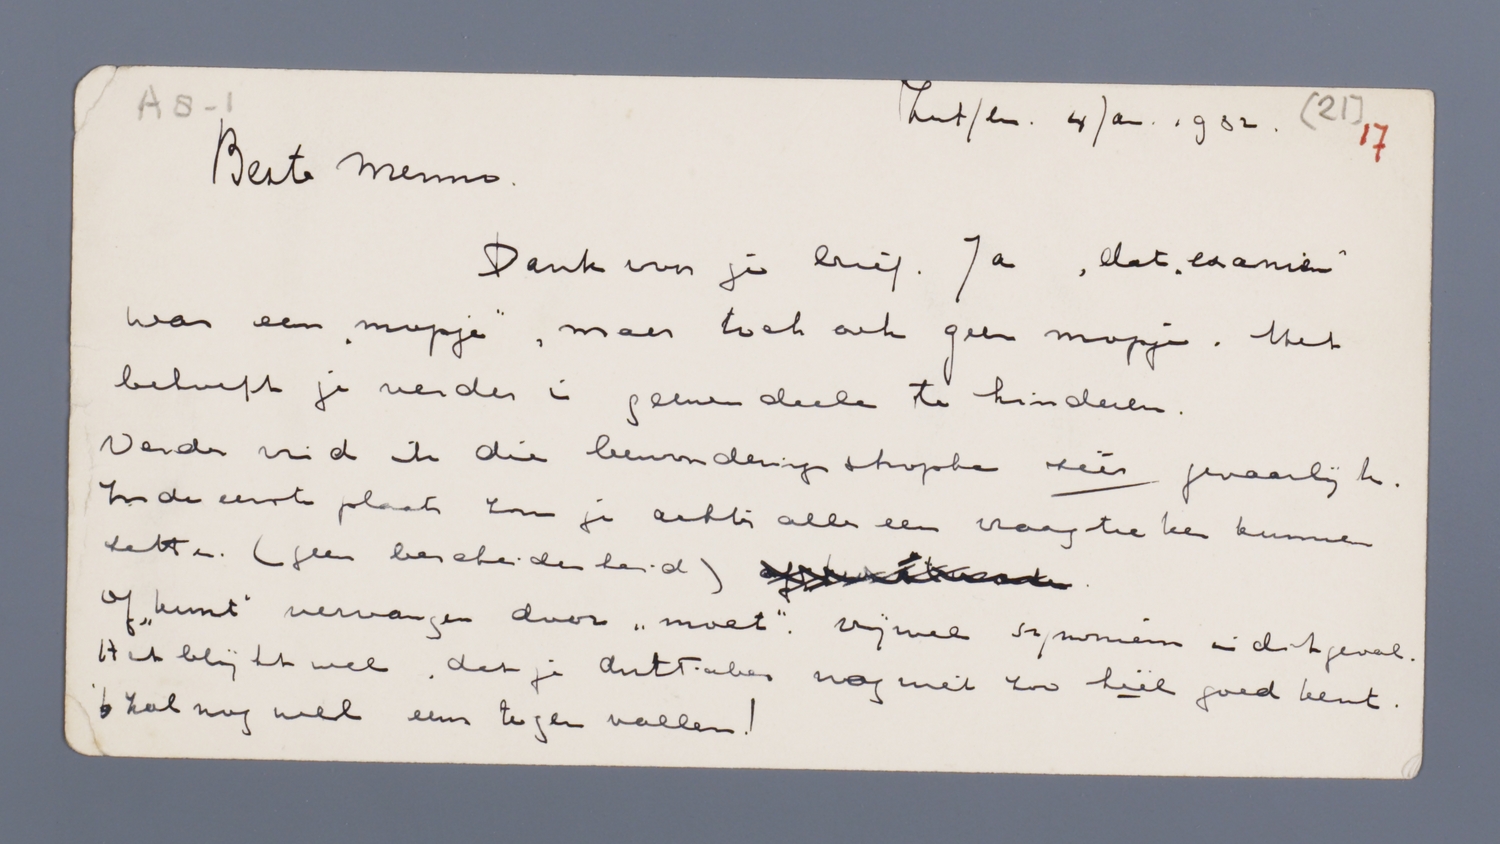 A 8-1
Zutfen. 4 Jan. 1932. (21) 17
Beste Menno.
Dank voor je brief. Ja „dat examen"
was een „mopje", maar toch ook geen mopje. Het
behoeft je verder in geenen deele te hinderen.
Verder vind ik die bewonderings strophe zéér gevaarlijk.
In de eerste plaats zou je achter alles een vraagteeken kunnen
zetten. (geen bescheidenheid)
Of „kunt" vervangen door „moet". Vrijwel synoniem in dit geval.
Het blijkt wel, dat je nog niet zoo héél goed kent.
'k zal nog wel eens tegen vallen!